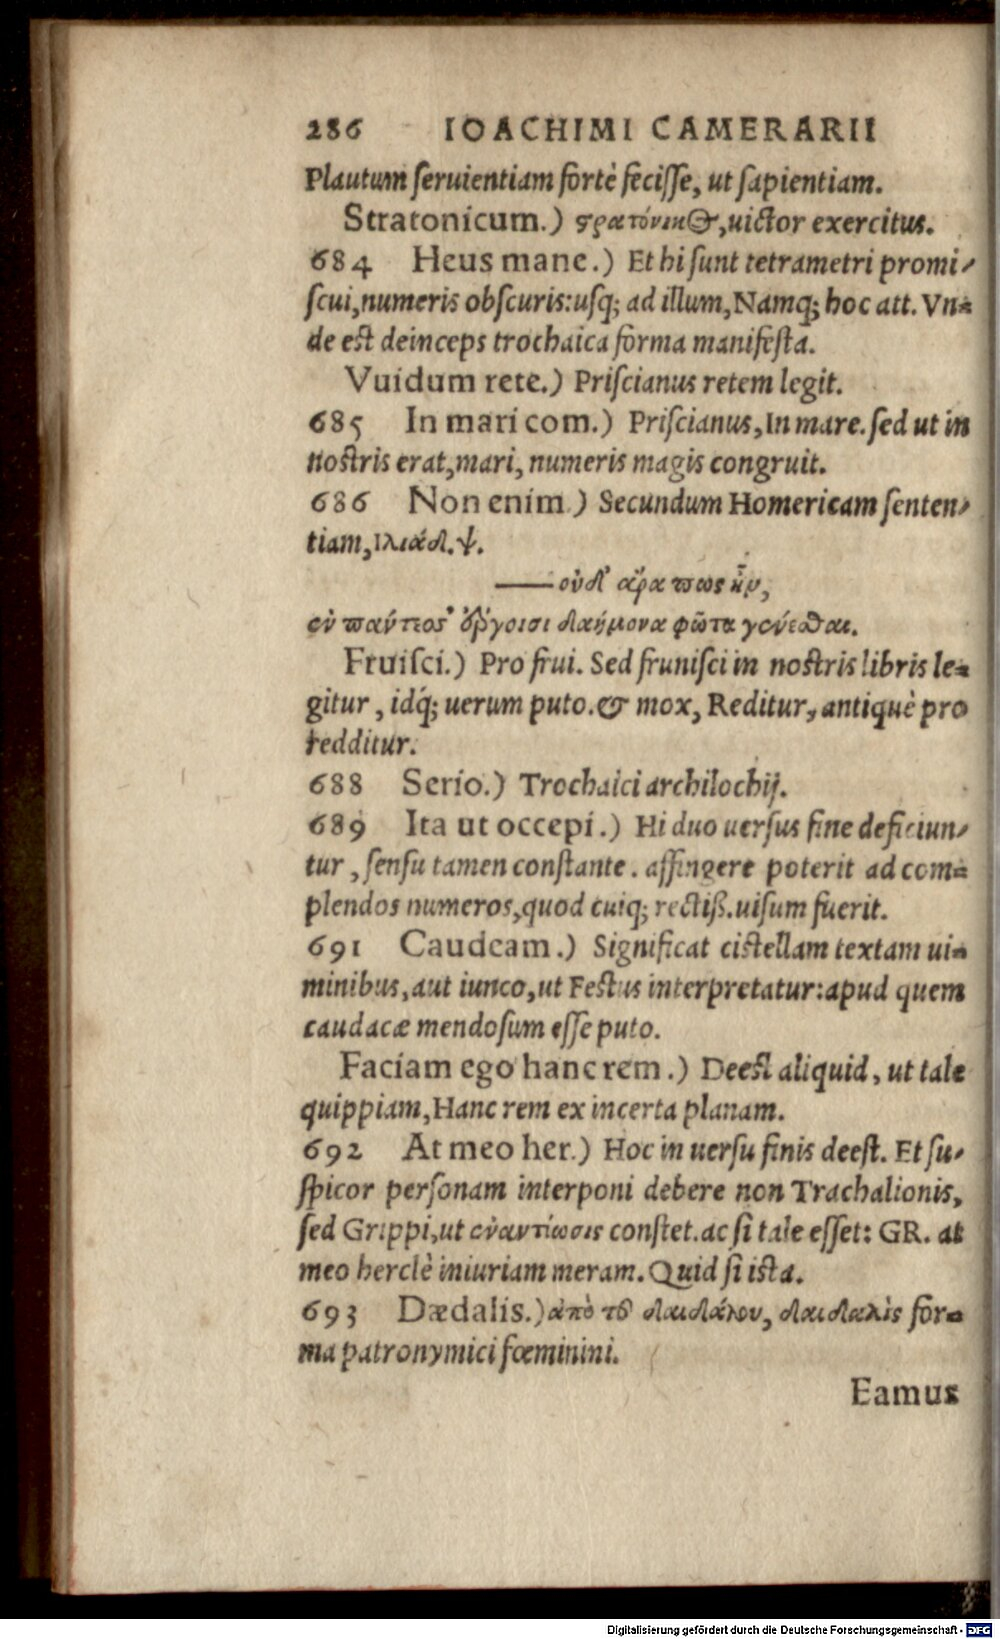 286 IOACHIMI CAMERARII
Plautum ſeruientiam fortè feciſſe, ut ſapientiam.
Stratonicum.) στρατόνικος, uictor exercitus.
684 Heus mane.) Et hi ſunt tetrametri promi-
ſcui, numeris obſcuris: uſq; ad illum, Namq; hoc att. Vn=
de eſt deinceps trochaica forma manifeſta.
Vuidum rete.) Priſcianus retem legit.
685 In mari com.) Priſcianus, In mare. ſed ut in
noſtris erat, mari, numeris magis congruit.
686 Non enim.) Secundum Homericam ſenten-
tiam, Ιλιάδ. ψ.
—— οὐδ' ἄρα πως ἦν,
ἐν πάντεσ' ἔργοισι δαήμονα φῶτα γενέσθαι.
Fruiſci.) Pro frui. Sed fruniſci in noſtris libris le=
gitur, idq́; uerum puto. & mox, Reditur, antiquè pro
redditur.
688 Serio.) Trochaici archilochij.
689 Ita ut occepi.) Hi duo uerſus fine deficiun-
tur, ſenſu tamen conſtante. affingere poterit ad com=
plendos numeros, quod cuiq; rectiß. uiſum fuerit.
691 Caudeam.) Significat ciſtellam textam ui=
minibus, aut iunco, ut Feſtus interpretatur: apud quem
caudacæ mendoſum eſſe puto.
Faciam ego hanc rem.) Deeſt aliquid, ut tale
quippiam, Hanc rem ex incerta planam.
692 At meo her.) Hoc in uerſu finis deeſt. Et ſu-
ſpicor perſonam interponi debere non Trachalionis,
ſed Grippi, ut ἐναντίωσις conſtet. ac ſi tale eſſet: GR. at
meo herclè iniuriam meram. Quid ſi iſta.
693 Dædalis.) ἀπὸ τοῦ δαιδάλου, δαιδαλὶς for=
ma patronymici fœminini.
Eamus
Digitalisierung gefördert durch die Deutsche Forschungsgemeinschaft - DFG